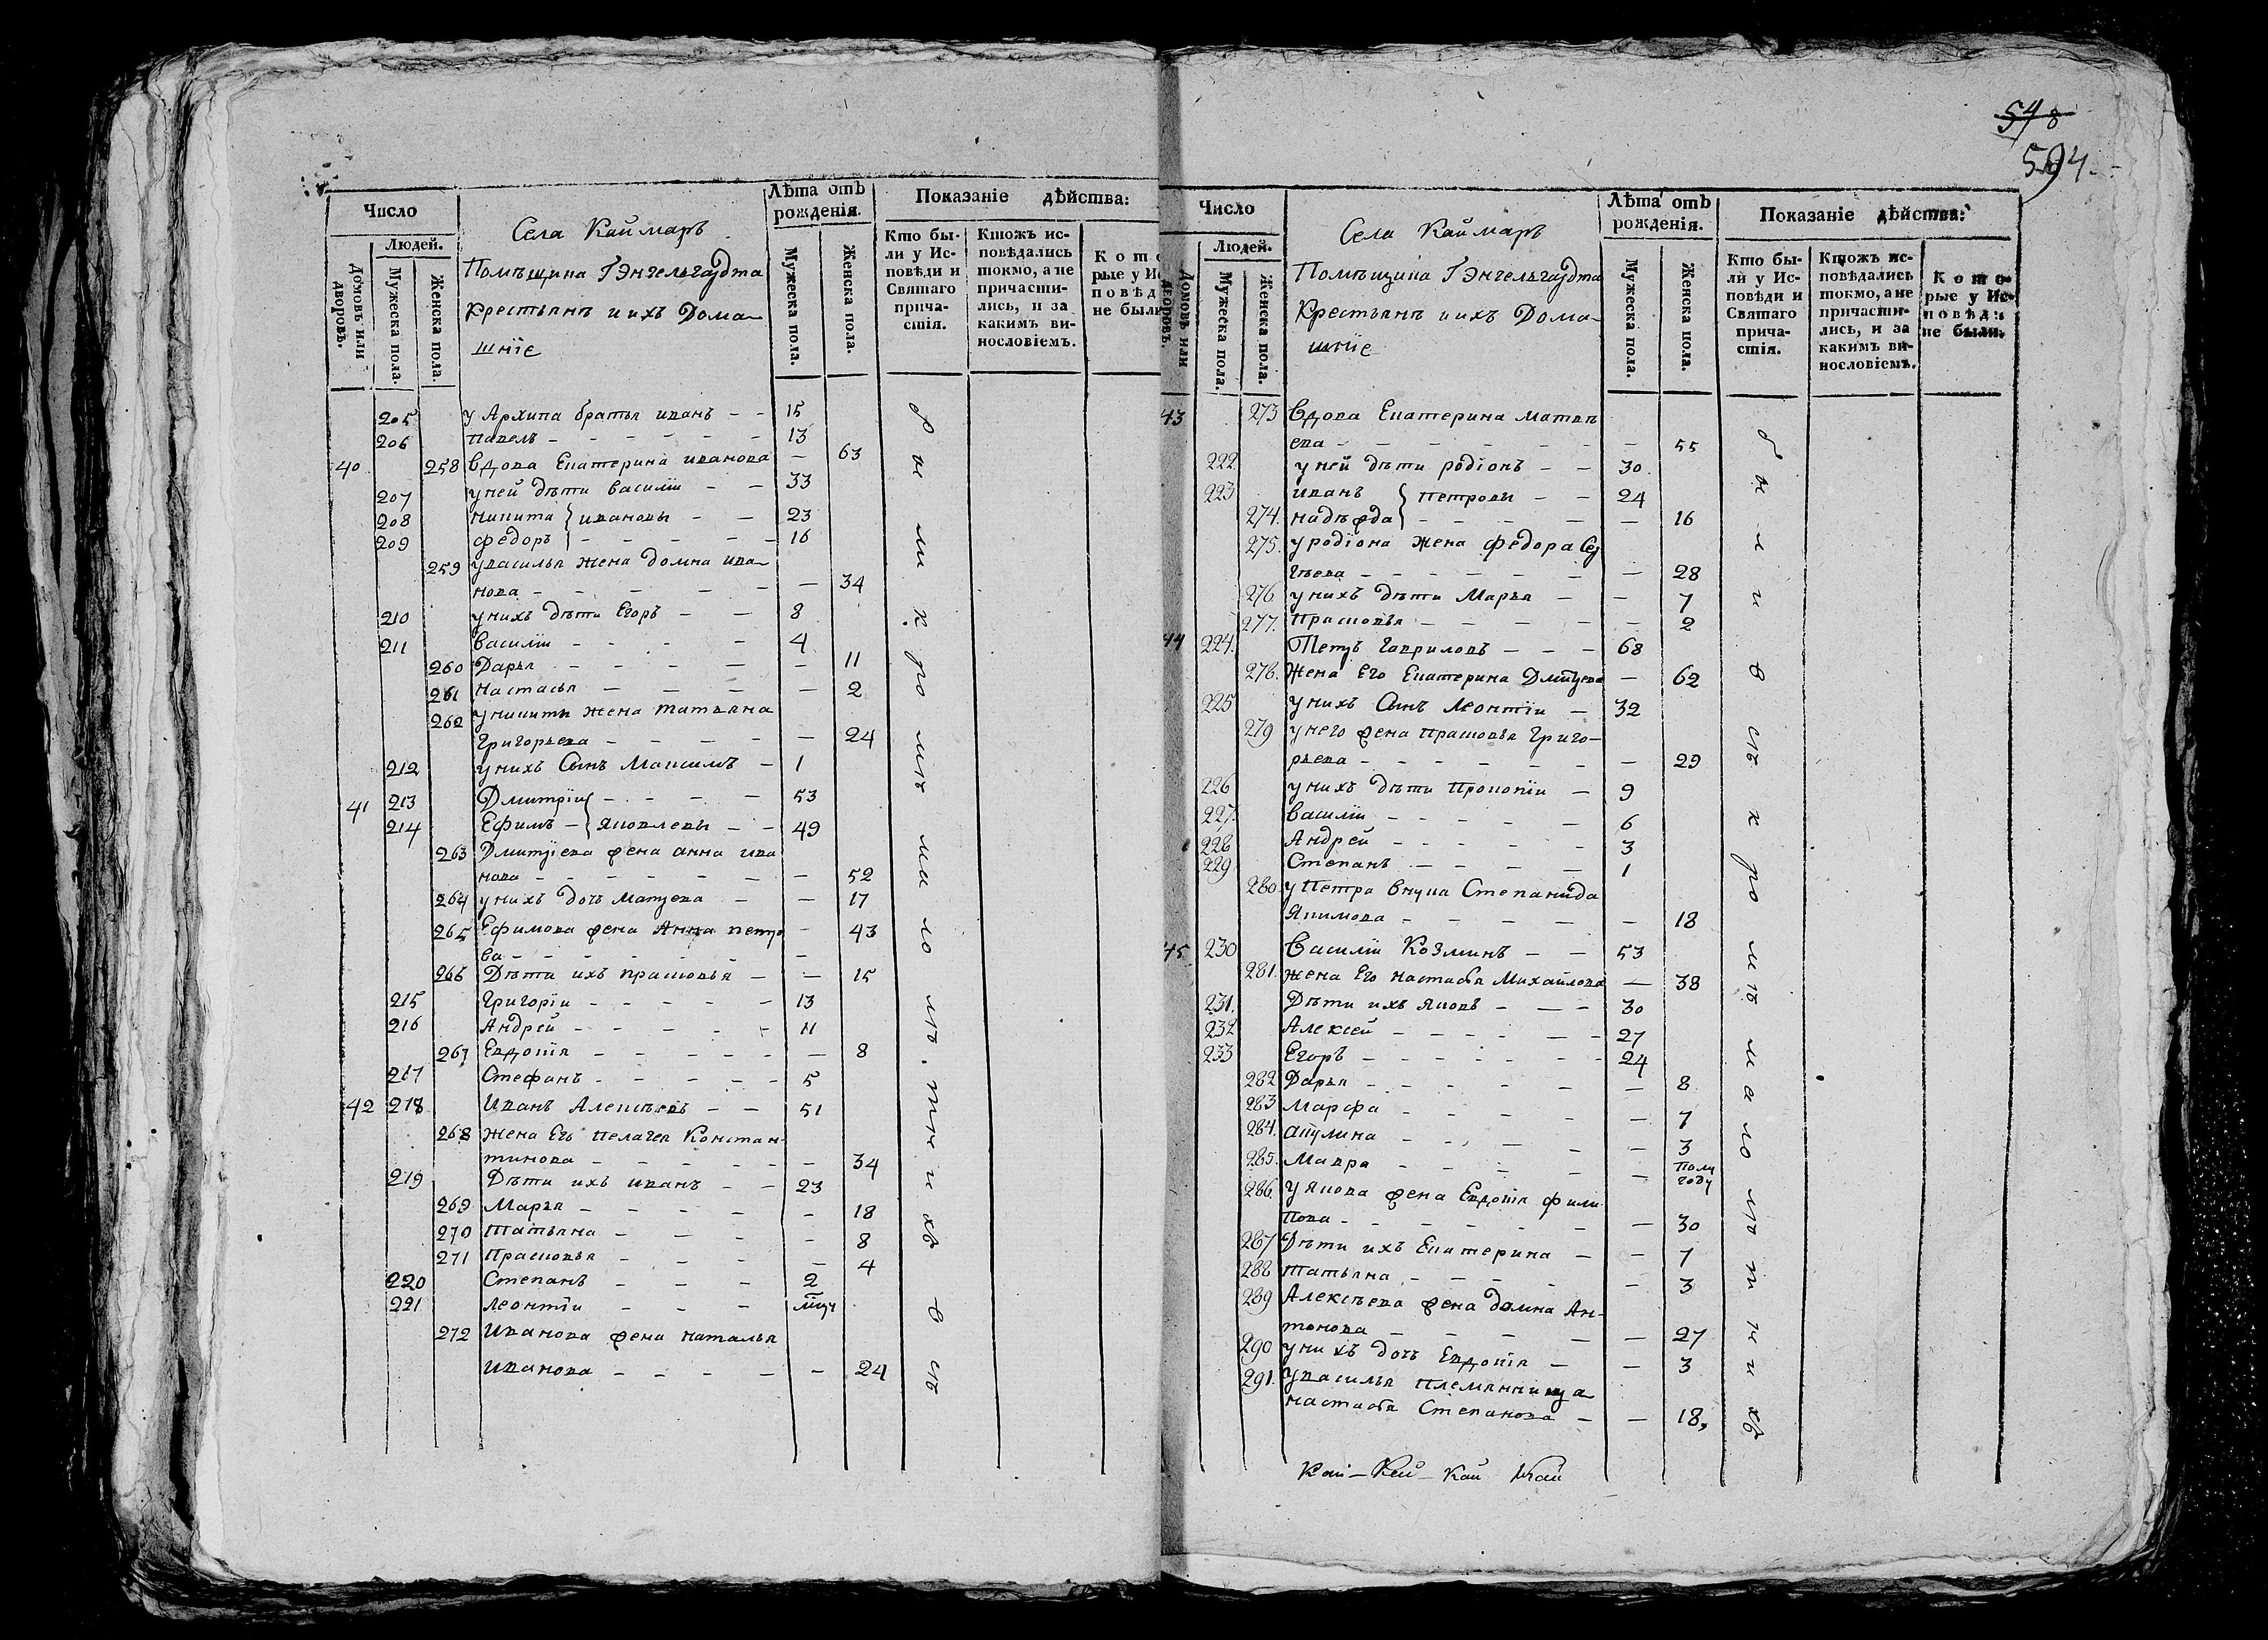 54/8
594.
Число
Людей.
Домовъ или дворовъ.
Мужеска пола.
Женска пола.
Села Каймаръ
Помѣщика Гэнгельгардта
Крестьянъ и ихъ Дома-
шніе
Лѣта отъ
рожденія.
Мужеска пола.
Женска пола.
Показаніе дѣйства:
Кто бы-
ли у Ис-
повѣди и
Святаго
прича-
стія.
Ктожъ ис-
повѣдались
токмо, а не
причасти-
лись, и за
какимъ ви-
нословіемъ.
Кото
рые у Ис
повѣд
не были
205 у Архипа братья иванъ - - 15
206 павелъ - - - - - - 13
40 258 вдова Екатерина иванова - 63
207 у ней дѣти василіи - - 33
208 никита } ивановы - - 23
209 федоръ } - - - - - 16
259 у василья жена домна ива-
нова - - - - - - 34
210 у нихъ дѣти Егоръ - - 8
211 василіи - - - - 4
260 Дарья - - - - - - 11
261 настасья - - - - - 2
262 у никиты жена татьяна
григорьева - - - - - 24
212 у нихъ Сынъ Максимъ - 1
41 213 Дмитріи { - - - - 53
214 Ефимъ - { яковлевы - - 49
263 Дмитріева жена анна ива
нова - - - - - - - 52
264 у нихъ дочь Матрена - - 17
265 Ефимова жена Анна петро - 43
ва - - - - - - -
266 Дѣти ихъ прасковья - - 15
215 григоріи - - - - - 13
216 Андрей - - - - - 11
267 Евдокія - - - - - - 8
217 Стефанъ - - - - - 5
42 218 Иванъ Алексѣевъ - - 51
268 жена Его пелагея Констан-
тинова - - - - - - 34
219 Дѣти ихъ иванъ - - 23
269 Марья - - - - - 18
270 татьяна - - - - 8
271 прасковья - - - - 4
220 Степанъ - - - 2
221 леонтіи - - -
272 Иванова жена наталья
иванова - - - - - - 24
бы ли кромѣ малолѣтнихъ всѣ
Число
Людей.
Домовъ или дворовъ.
Мужеска пола.
Женска пола.
Села Каймаръ
Помѣщика Гэнгельгардта
Крестьянъ и ихъ Дома-
шніе
Лѣта отъ
рожденія.
Мужеска пола.
Женска пола.
Показаніе дѣйства:
Кто бы-
ли у Ис-
повѣди и
Святаго
прича-
стія.
Ктожъ ис-
повѣдались
токмо, а не
причасти-
лись, и за
какимъ ви-
нословіемъ.
Кото-
рые у Ис-
повѣди
не были.
43 273 вдова Екатерина матвѣ
ева - - - - - - - - 55
222 у ней дѣти родіонъ - - 30
223 иванъ } петровы - - 24
274 надѣжда } - - - - - 16
275 у родіона жена федора Сер
гѣева - - - - - - - 28
276 у нихъ дѣти Марья - - 7
277 прасковья - - - - - - 2
44 224 Петръ Гавриловъ - - - 68
278 Жена Его Екатерина Дмитріева - 62
225 у нихъ Сынъ Леонтіи - 32
279 у него жена прасковья Григо-
рьева - - - - - - - 29
226 у нихъ дѣти Прокопіи - 9
227 василіи - - - - - 6
228 Андрей - - - - - 3
229 Степанъ - - - - 1
280 у Петра внука Степанида
Якимова - - - - - - 18
45 230 Василіи Козминъ - - 53
281 жена Его настасья Михайлова - 38
231 Дѣти ихъ яковъ - - - 30
232 Алексей - - - - - - 27
233 Егоръ - - - - - - 24
282 Дарья - - - - - - 8
283 Марфа - - - - - 7
284 акулина - - - - - 3
285 Мавра - - - - - полу
году
286 у якова жена Евдокія фили-
пова - - - - - - - 30
287 Дѣти ихъ Екатерина - - 7
288 татьяна - - - - - 3
289 Алексѣева жена домна Ан-
тонова - - - - - 27
290 у нихъ дочь Евдокія - - 3
291 у василья племянница
настасья Степанова - - 18,
были всѣ кромѣ малолѣтнихъ
Кай - Кей - Кай Кай